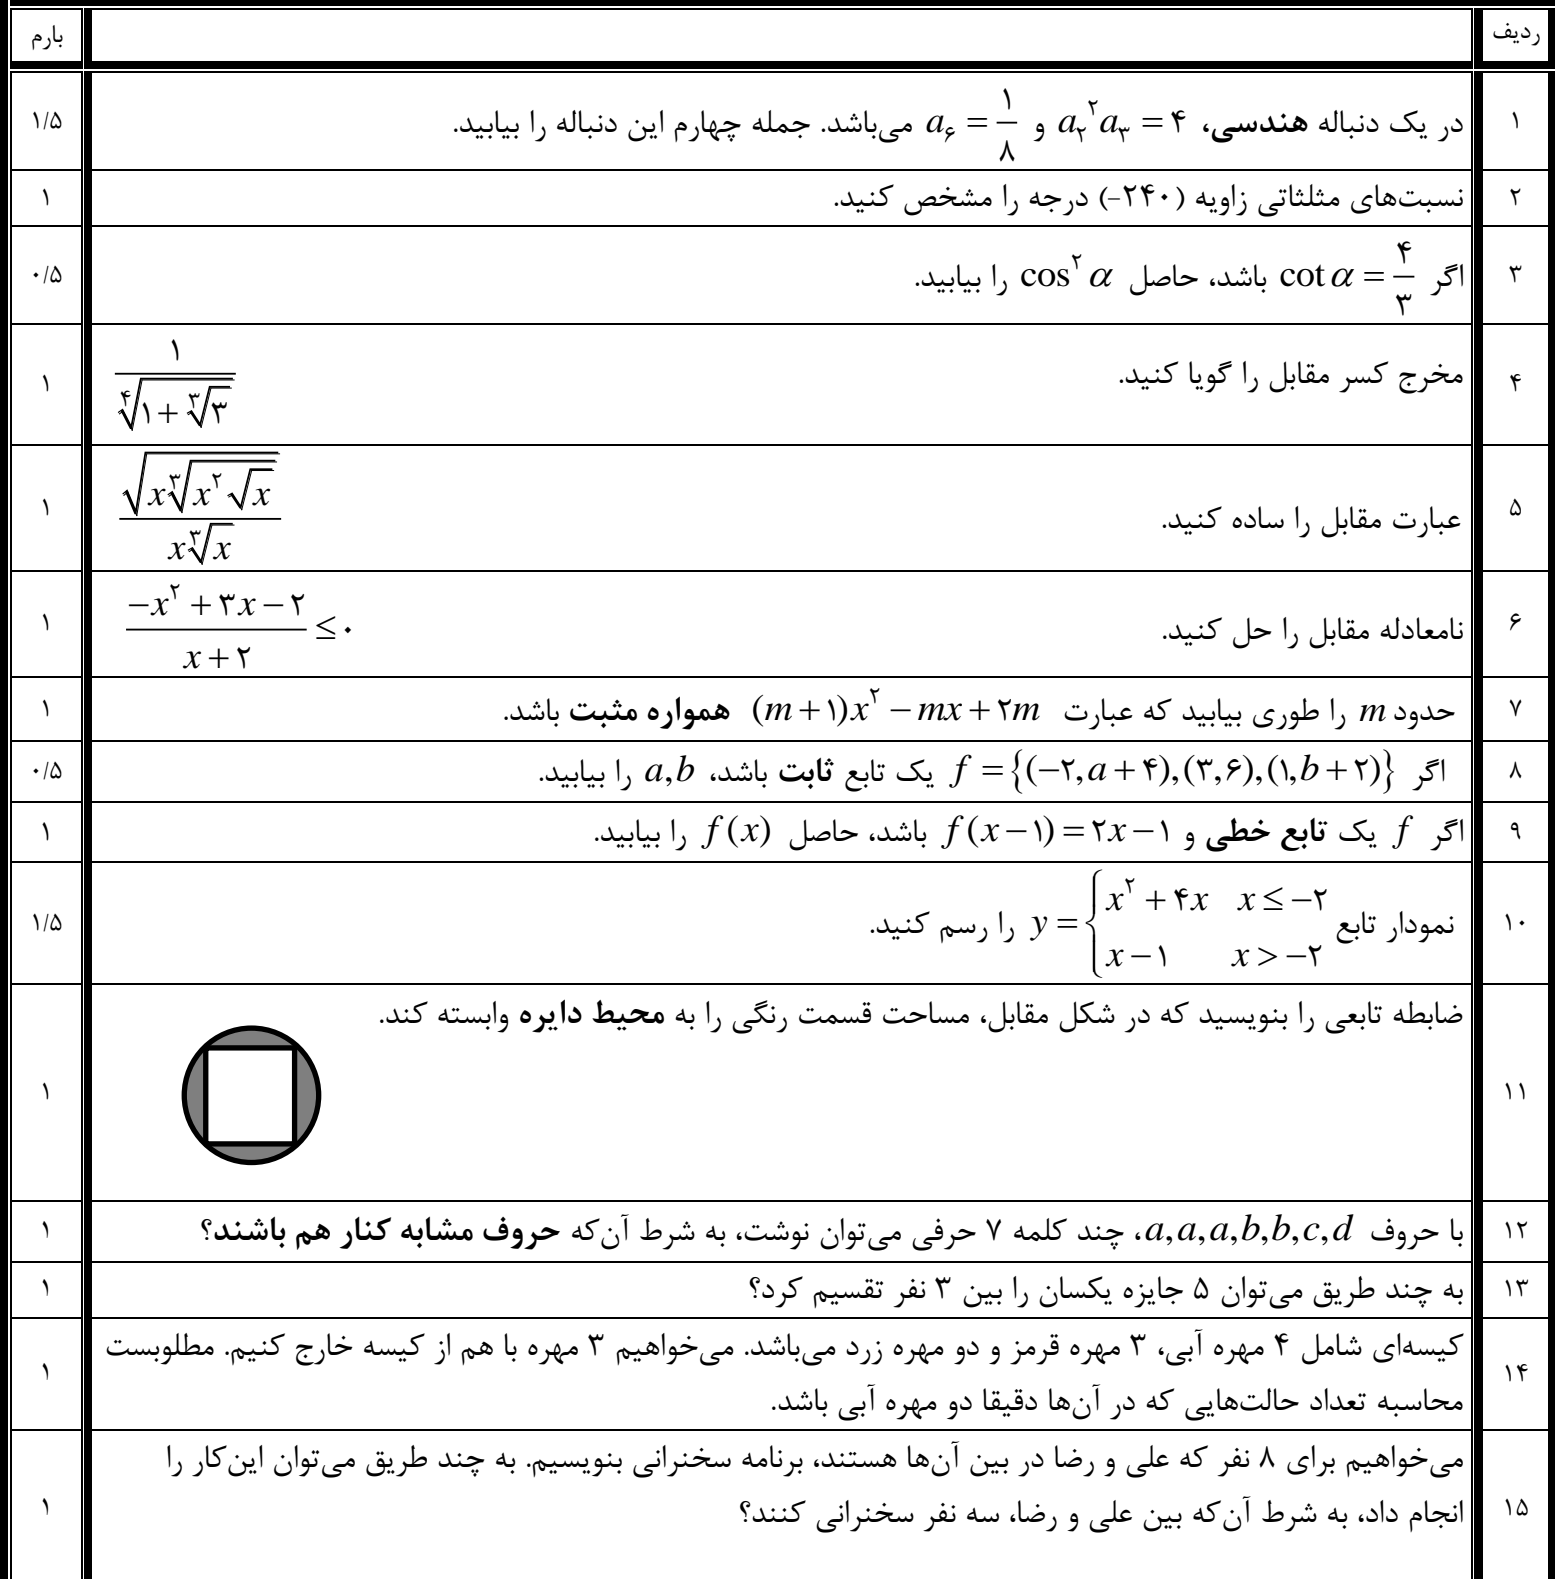 ردیف بارم
۱ در یک دنباله هندسی، a₂²a₃ = ۴ و a₆ = ۱/۸ می‌باشد. جمله چهارم این دنباله را بیابید. ۱/۵
۲ نسبت‌های مثلثاتی زاویه (۲۴۰-) درجه را مشخص کنید. ۱
۳ اگر cot α = ۴/۳ باشد، حاصل cos² α را بیابید. ۰/۵
۴ مخرج کسر مقابل را گویا کنید. ۱/∜(۱+∛۳) ۱
۵ عبارت مقابل را ساده کنید. √(x∛(x²√x)) / (x∛x) ۱
۶ نامعادله مقابل را حل کنید. (−x² + ۳x − ۲)/(x + ۲) ≤ ۰ ۱
۷ حدود m را طوری بیابید که عبارت (m+۱)x² − mx + ۲m همواره مثبت باشد. ۱
۸ اگر f = {(−۲,a+۴),(۳,۶),(۱,b+۲)} یک تابع ثابت باشد، a,b را بیابید. ۰/۵
۹ اگر f یک تابع خطی و f(x−۱) = ۲x−۱ باشد، حاصل f(x) را بیابید. ۱
۱۰ نمودار تابع y = { x² + ۴x x ≤ −۲
x − ۱ x > −۲ را رسم کنید. ۱/۵
ضابطه تابعی را بنویسید که در شکل مقابل، مساحت قسمت رنگی را به محیط دایره وابسته کند.
۱۱ ۱
۱۲ با حروف a,a,a,b,b,c,d، چند کلمه ۷ حرفی می‌توان نوشت، به شرط آن‌که حروف مشابه کنار هم باشند؟ ۱
۱۳ به چند طریق می‌توان ۵ جایزه یکسان را بین ۳ نفر تقسیم کرد؟ ۱
۱۴ کیسه‌ای شامل ۴ مهره آبی، ۳ مهره قرمز و دو مهره زرد می‌باشد. می‌خواهیم ۳ مهره با هم از کیسه خارج کنیم. مطلوبست ۱
محاسبه تعداد حالت‌هایی که در آن‌ها دقیقا دو مهره آبی باشد.
می‌خواهیم برای ۸ نفر که علی و رضا در بین آن‌ها هستند، برنامه سخنرانی بنویسیم. به چند طریق می‌توان این‌کار را
۱۵ انجام داد، به شرط آن‌که بین علی و رضا، سه نفر سخنرانی کنند؟ ۱